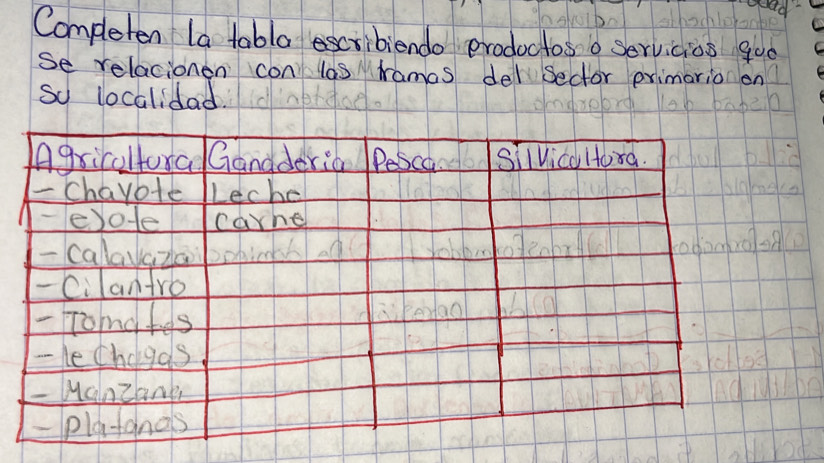 Completen la tabla escribiendo productos o servicios que
se relacionen con las ramas del sector primario en
su localidad.
Agricultura Ganaderia Pesca Silvicultura.
- Chayote Leche
- ejote carne
- calavaza
- Cilantro
- Tomates
- lechugas
- Manzana
- platanos